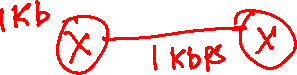 1Kb
X
X
1Kbps